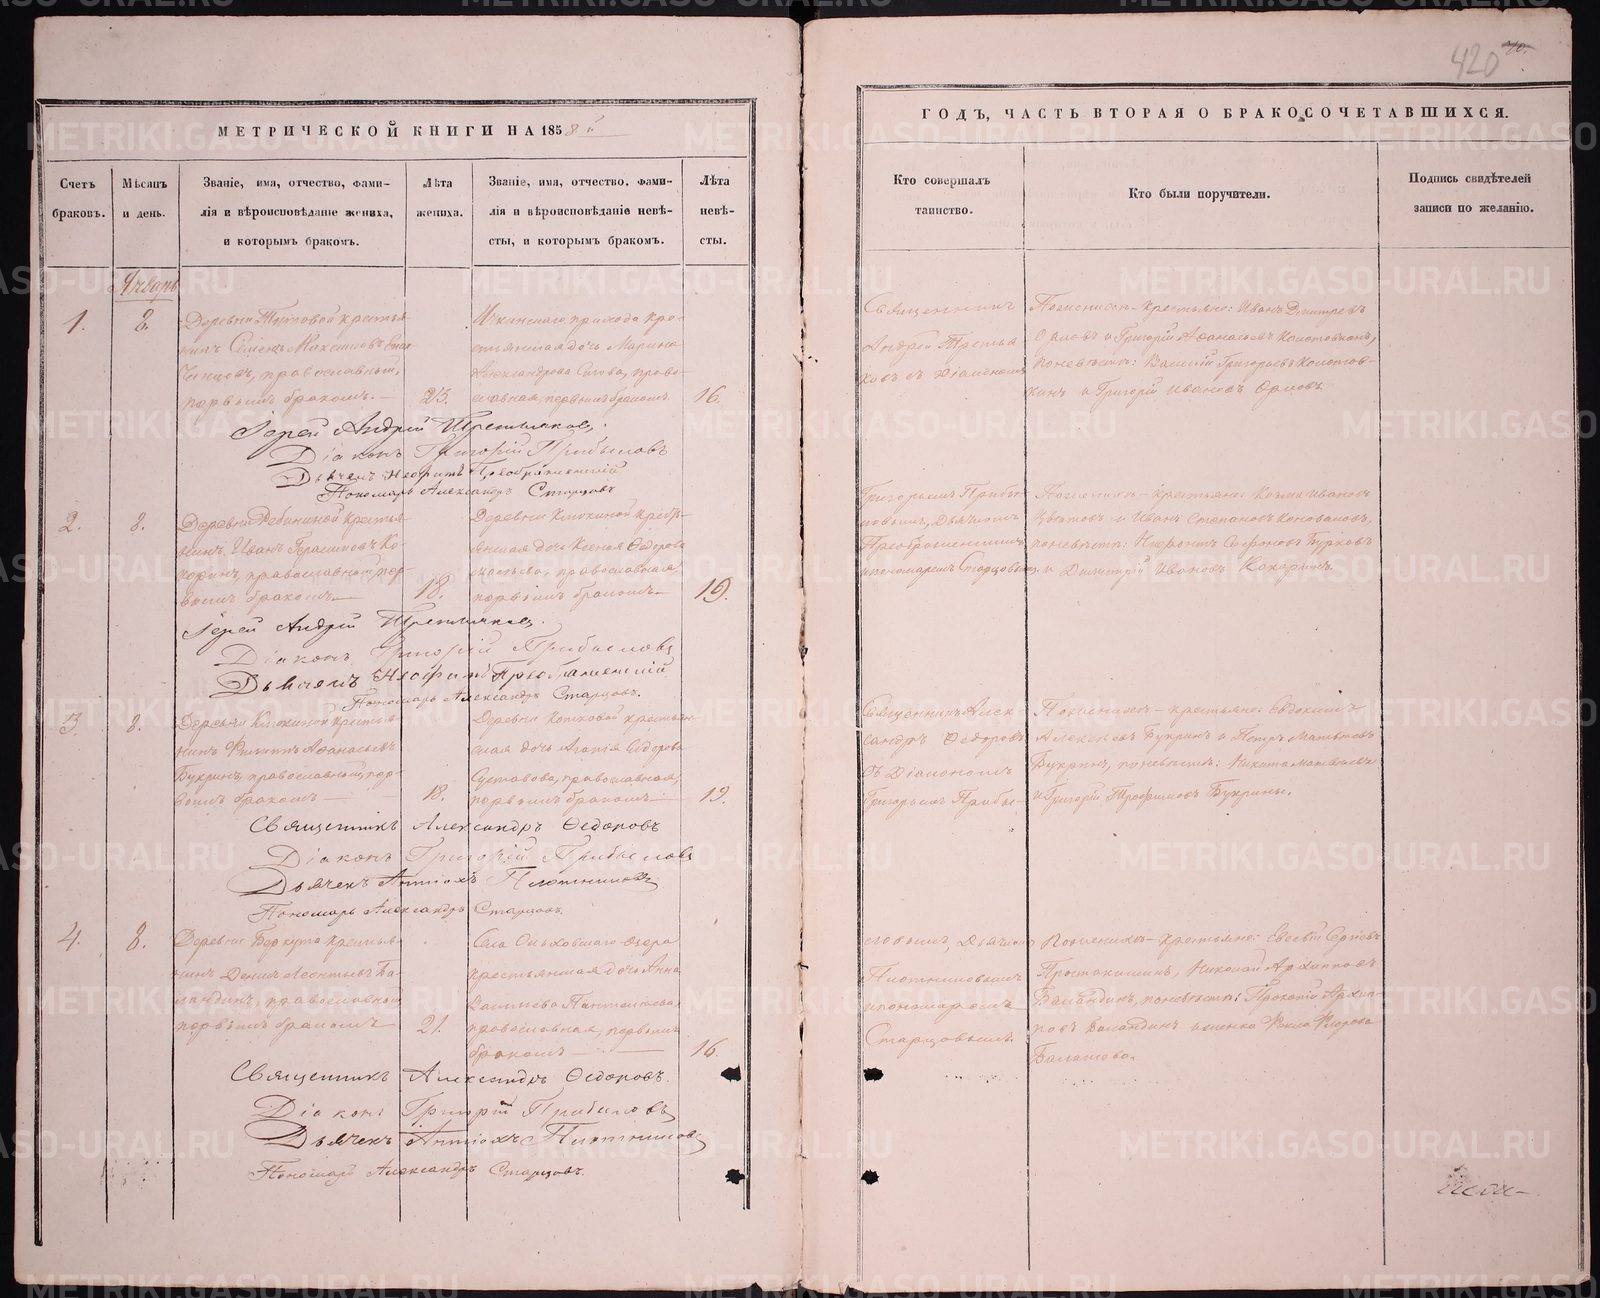 420
МЕТРИЧЕСКОЙ КНИГИ НА 1858 й
ГОДЪ, ЧАСТЬ ВТОРАЯ О БРАКОСОЧЕТАВШИХСЯ.
Счетъ
браковъ.
Мѣсяцъ
и день.
Званіе, имя, отчество, фами-
лія и вѣроисповѣданіе жениха,
и которымъ бракомъ.
Лѣта
жениха.
Званіе, имя, отчество, фами-
лія и вѣроисповѣданіе невѣ-
сты, и которымъ бракомъ.
Лѣта
невѣ-
сты.
Кто совершалъ
таинство.
Кто были поручители.
Подпись свидѣтелей
записи по желанію.
Январь
1.
8.
Деревни Титовой крестья-
нинъ Семенъ Максимовъ
православный,
первымъ бракомъ.
23.
прихода кре-
стьянская дочь Марина
Александрова право-
славная, первымъ бракомъ
16.
Священникъ
Андрей Третья-
ковъ съ Діакономъ
По женихѣ крестьяне: Иванъ Дмитріевъ
Орловъ и Григорій Аѳанасьевъ
по невѣстѣ: Василій Григорьевъ
и Григорій Ивановъ Орловъ.
Іерей Андрей Третьяковъ.
Діаконъ Григорій Прибыловъ
Дьячекъ Неофитъ Преображенскій
Пономарь Александръ Старцовъ
2.
8.
Деревни Рябининой крестья-
нинъ Иванъ Герасимовъ Ко-
коринъ, православный, пер-
вымъ бракомъ
18.
Деревни Клюкиной кресть-
янская дочь Ксенія Ѳедорова
православная,
первымъ бракомъ
19.
Григорьемъ Прибы-
ловымъ, Дьячкомъ
Преображенскимъ
и пономаремъ Старцовымъ
По женихѣ крестьяне: Козма Ивановъ
и Иванъ Степановъ Коноваловъ,
по невѣстѣ: Сафоновъ Бурковъ
и Димитрій Ивановъ Кокоринъ.
Іерей Андрей Третьяковъ.
Діаконъ Григорій Прибыловъ
Дьячекъ Неофитъ Преображенскій
Пономарь Александръ Старцовъ.
3.
8.
Деревни Клюкиной крестья-
нинъ Филипъ Аѳанасьевъ
Букринъ, православный, пер-
вымъ бракомъ
18.
Деревни крестьян-
ская дочь Агапія Ѳедорова
православная,
первымъ бракомъ
19.
Священникъ Алек-
сандръ Ѳедоровъ
съ Діакономъ
Григорьемъ Прибы-
По женихѣ крестьяне: Евдокимъ
Алексѣевъ Букринъ и Петръ Матвѣевъ
Букринъ, по невѣстѣ: Никита Матвѣевъ
и Григорій Трофимовъ Букрины.
Священникъ Александръ Ѳедоровъ
Діаконъ Григорій Прибыловъ
Дьячекъ Антіохъ Плотниковъ
Пономарь Александръ Старцовъ.
4.
8.
Деревни Беркута крестья-
нинъ Денисъ Леонтьевъ Ба-
ландинъ, православный
первымъ бракомъ
21.
Села Ольховскаго озера
крестьянская дочь Анна
православная, первымъ
бракомъ
16.
ловымъ, Дьячкомъ
Плотниковымъ
и пономаремъ
Старцовымъ.
По женихѣ крестьяне: Евсевій
Николай Архиповъ
Баландинъ, по невѣстѣ: Прокопій Архип-
повъ Баландинъ и женка
Священникъ Александръ Ѳедоровъ.
Діаконъ Григорій Прибыловъ
Дьячекъ Антіохъ Плотниковъ
Пономарь Александръ Старцовъ.
METRIKI.GASO-URAL.RU